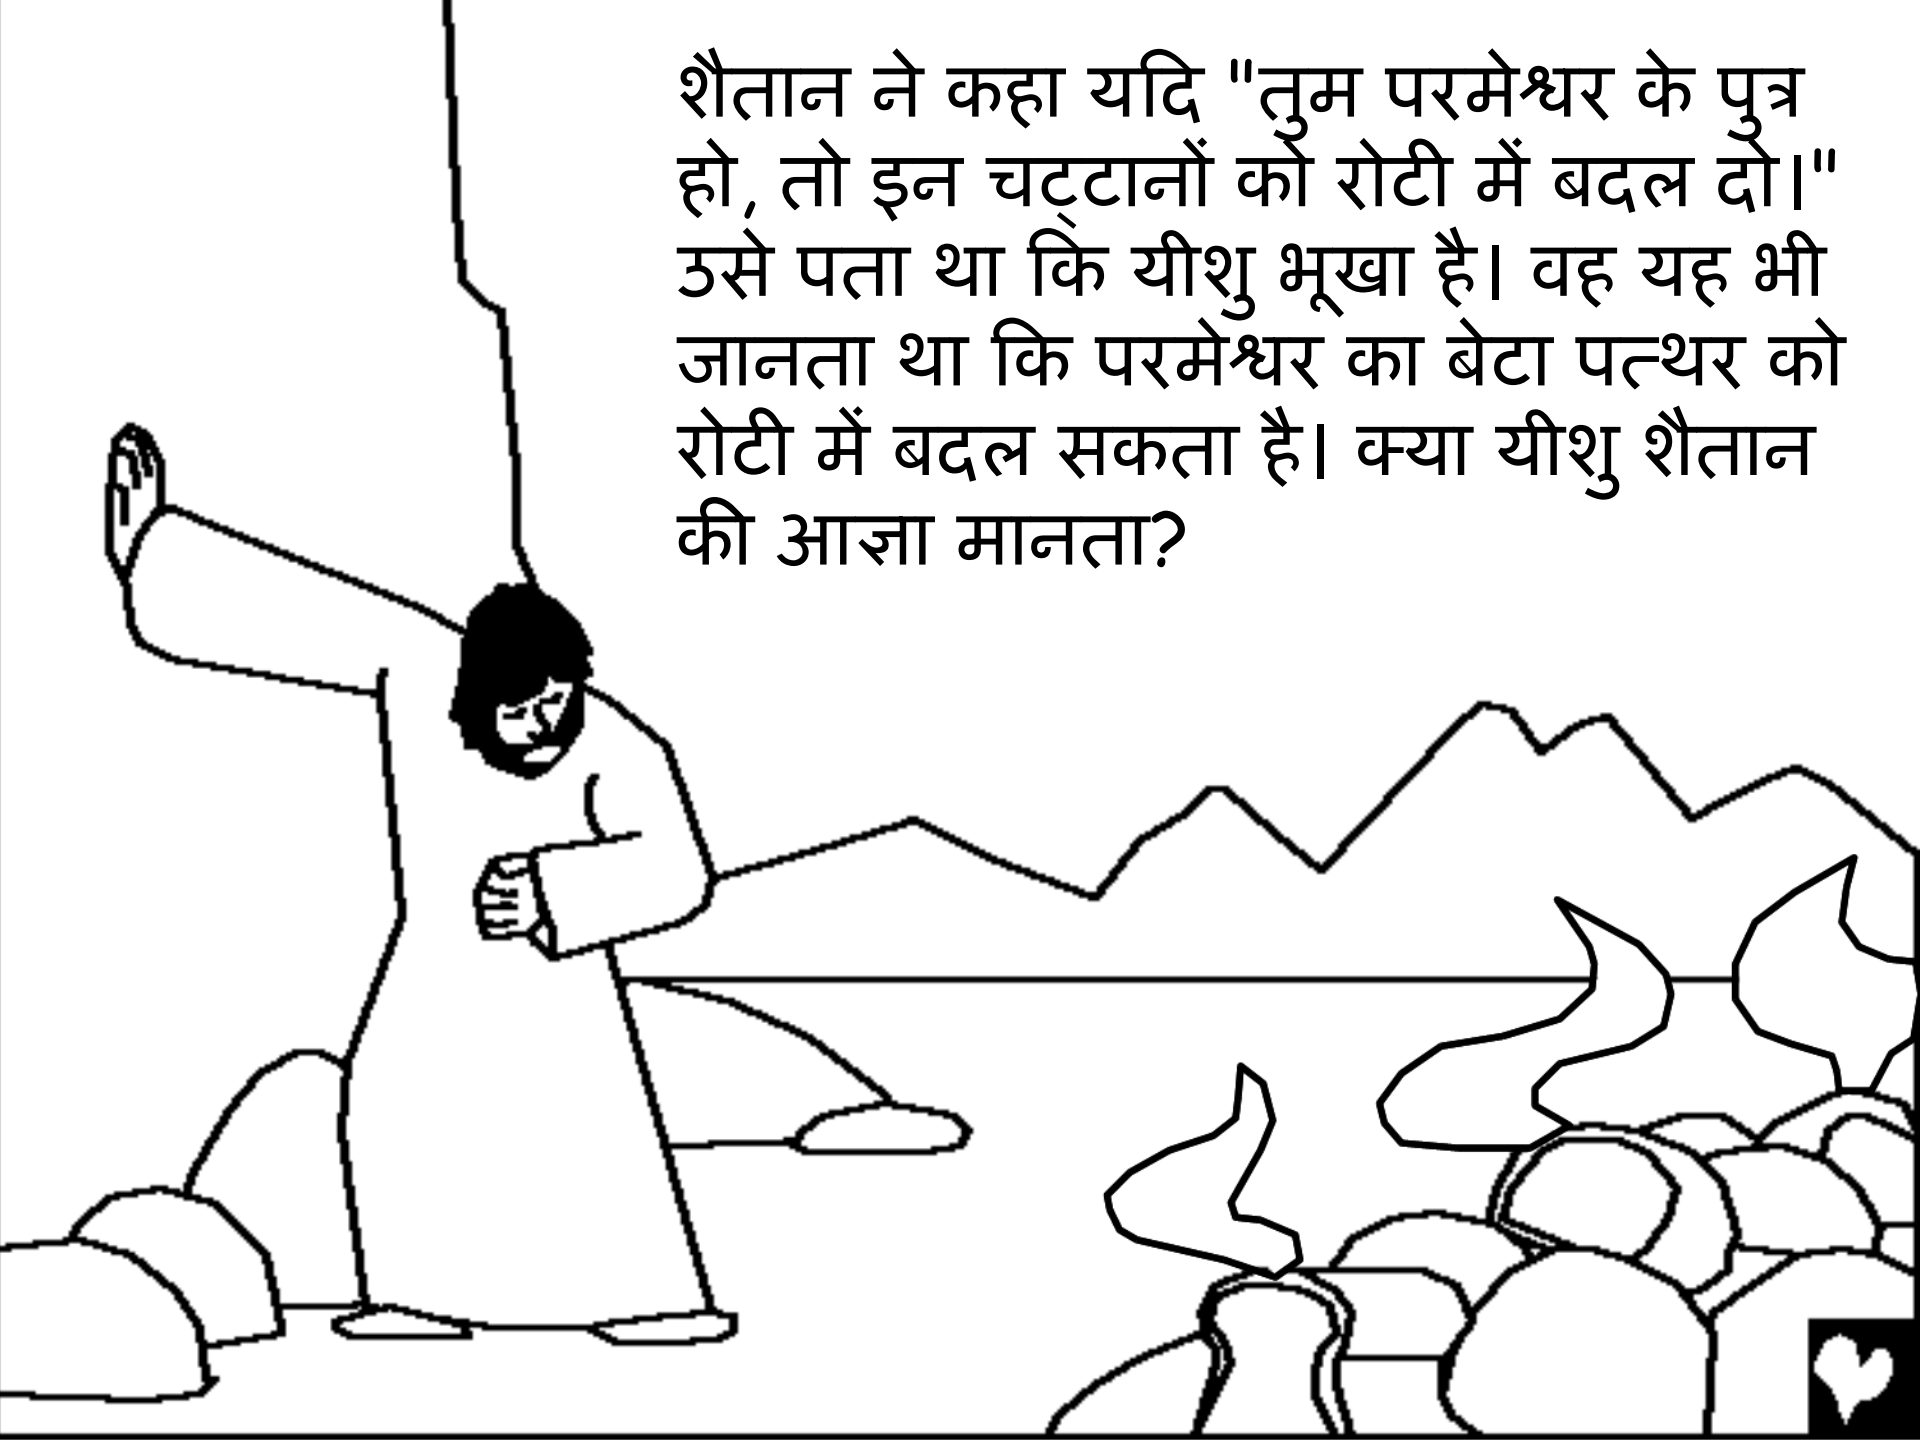 शैतान ने कहा यदि "तुम परमेश्वर के पुत्र
हो, तो इन चट्टानों को रोटी में बदल दो।"
उसे पता था कि यीशु भूखा है। वह यह भी
जानता था कि परमेश्वर का बेटा पत्थर को
रोटी में बदल सकता है। क्या यीशु शैतान
की आज्ञा मानता?